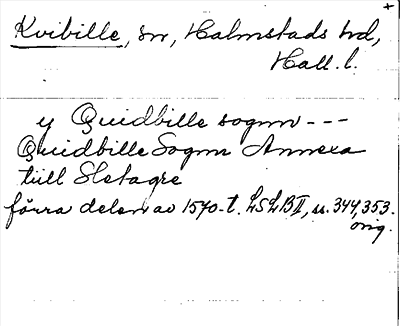 +
Kvibille, sn, Halmstads hd,
Hall. l.
y Quidbille sognn ---
Quidbille Sognn Annexa
tiill Sletagre
förra delen av 1570-t. LSLBII, ss. 344, 353.
orig.